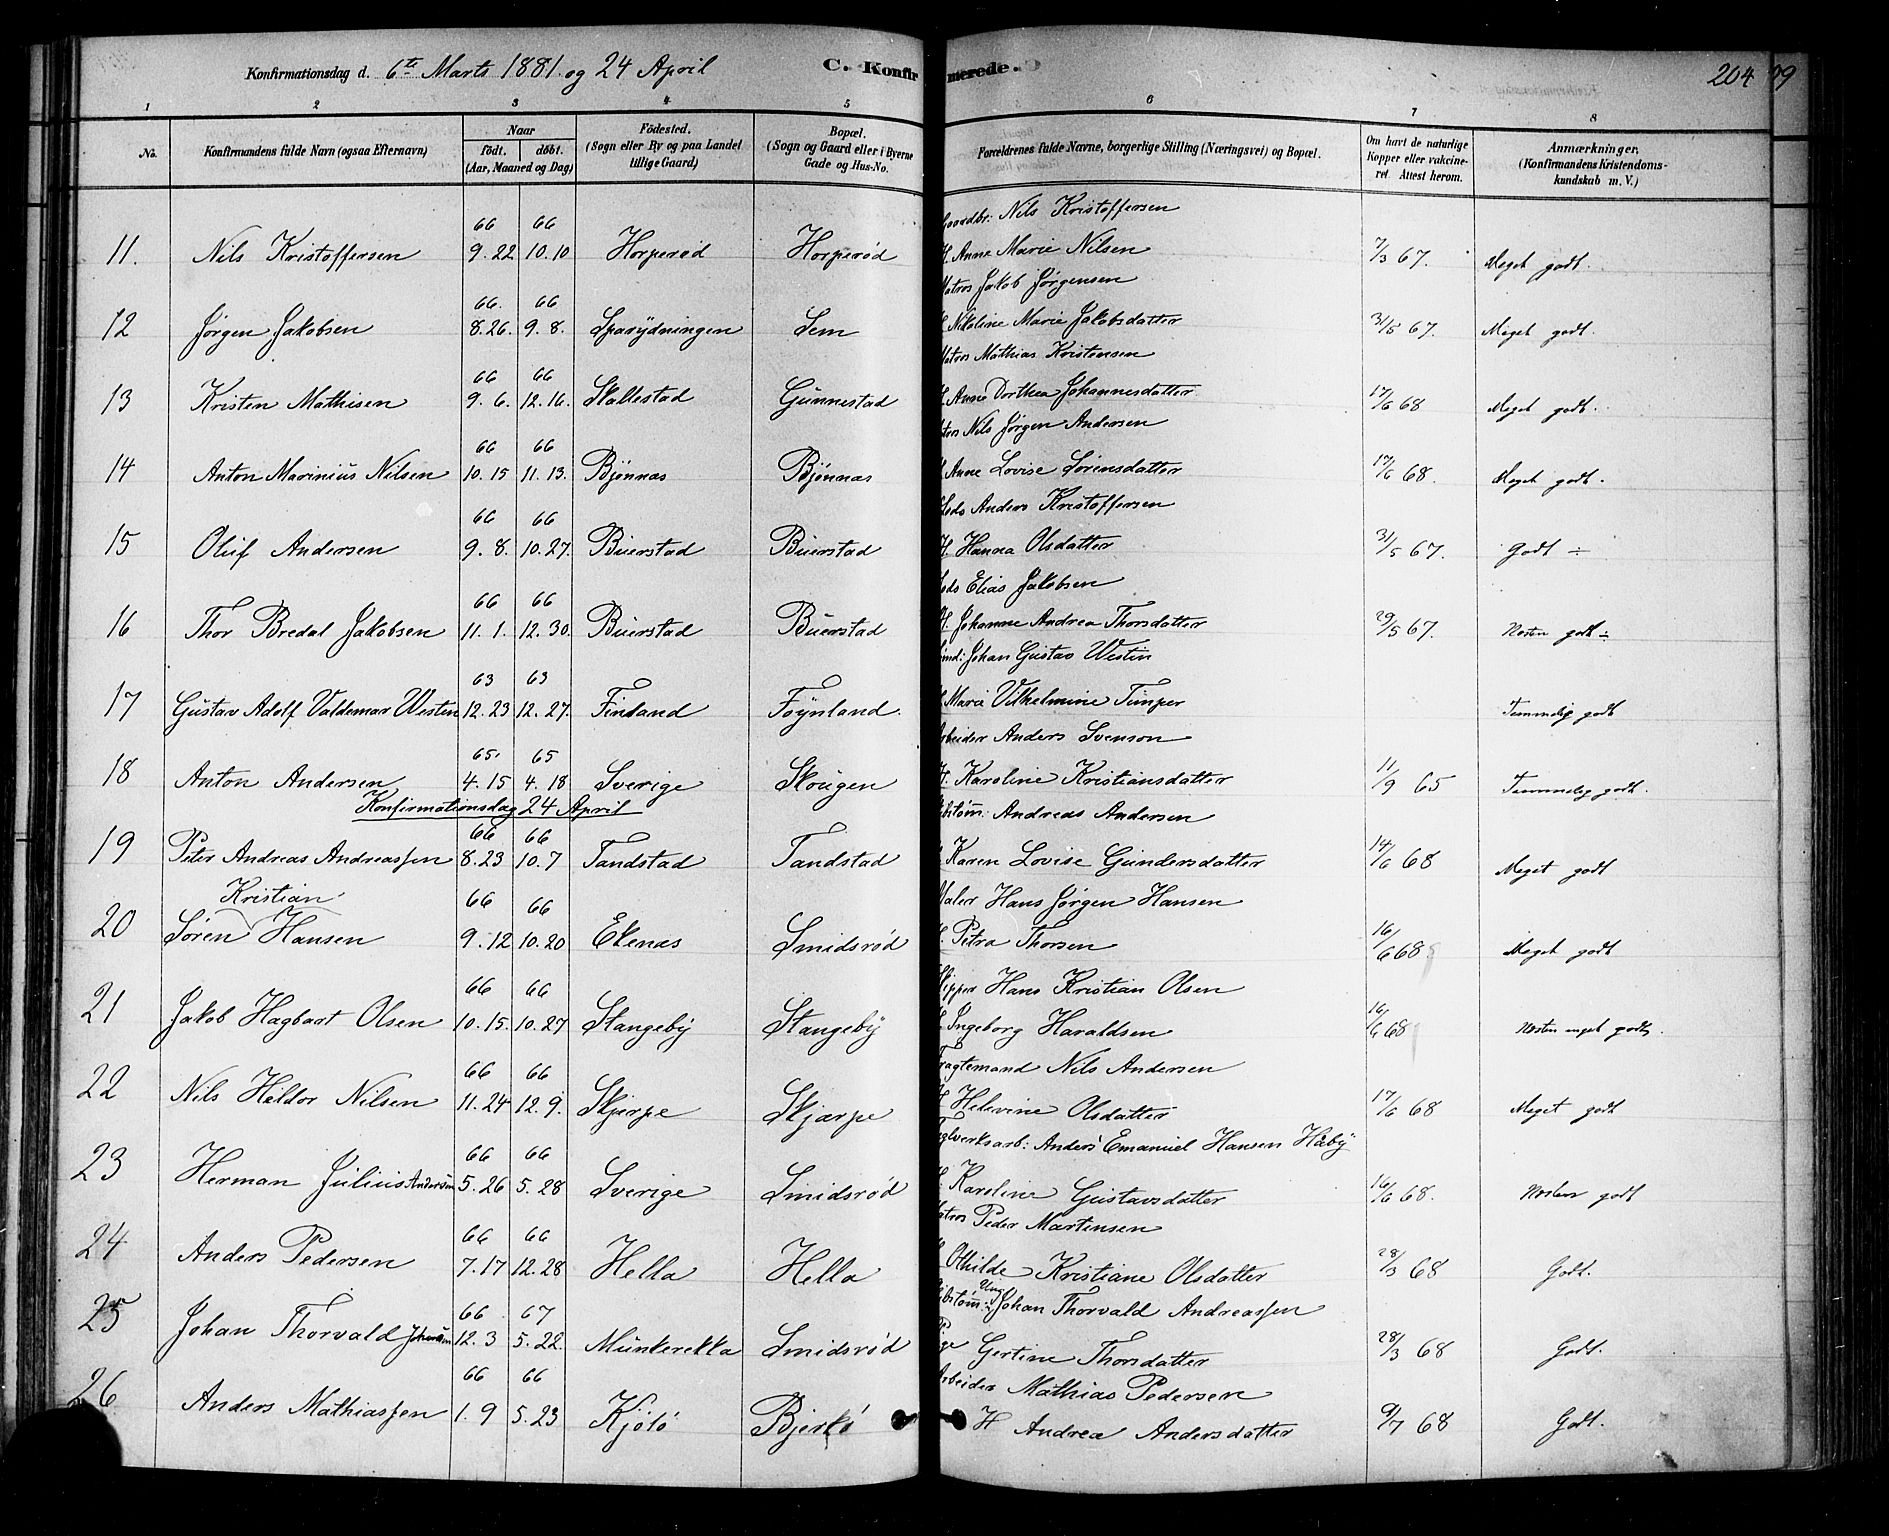 Konfirmationsdag d. 6te Marts 1881 og 24 April C. Konfirmerede. 204
1 2 3 4 5 6 7 8
No. Konfirmandens fulde Navn (ogsaa Efternavn) Naar födt. döbt. (Aar, Maaned og Dag) Födested. (Sogn eller By og paa Landet tillige Gaard) Bopæl. (Sogn og Gaard eller i Byerne Gade og Hus-No. Forældrenes fulde Navne, borgerlige Stilling (Næringsvei) og Bopæl. Om havt de naturlige Kopper eller vakcineret. Attest herom. Anmærkninger. (Konfirmandens Kristendomskundskab m. V.)
66 66 Gaardbr: Nils Kristoffersen
11. Nils Kristoffersen 9. 22 10. 10 Horperød Horperød H. Anne Marie Nilsen 7/3 67. Meget godt.
66. 66 Matros Jakob Jørgensen
12 Jørgen Jakobsen 8. 26. 9. 8. Sparydningen Sem Nikoline Marie Jakobsdatter 31/5 67. Meget godt.
66 66 Matros Mathias Kristensen
13 Kristen Mathisen 9. 6. 12. 16. Skallestad Gunnestad H. Anne Dorthea Johannesdatter 17/6 68 Meget godt.
66 66 Nils Jørgen Andersen
14 Anton Marinius Nilsen 10. 15 11. 13. Bjønnas Bjønnas Anne Lovise Sørensdatter 17/6 68. Meget godt.
66 66 Lods Anders Kristoffersen
15 Oluf Andersen 9. 8. 10. 27. Buerstad Buerstad H. Hanna Olsdatter 31/5 67. Godt ÷
66 66 Lods Elias Jakobsen
16 Thor Bredal Jakobsen 11. 1. 12. 30. Buerstad Buerstad H. Johanne Andrea Thorsdatter 29/5 67. Nesten godt ÷
63 63 Johan Gustav Westin
17 Gustav Adolf Valdemar Westin 12. 23 12. 27. Finland Føynland. Marie Vilhelmine Timper Temmelig godt
65. 65 Arbeider Anders Svenson
18 Anton Andersen 4. 15 4. 18 Sverige Skougen H. Karoline Kristiansdatter 11/9 65 Temmelig godt.
Konfirmationsdag 24 April
66 66 Andreas Andersen
19 Peter Andreas Andreassen 8. 23 10. 7 Tandstad Tandstad Karen Lovise Gundersdatter 14/6 68 Meget godt
Kristian 66 66 Maler Hans Jørgen Hansen
20 Søren Hansen 9. 12 10. 20 Ekenas Smidsrød H. Petra Thorsen 16/6 68 Meget godt
66 66 Skipper Hans Kristian Olsen
21 Jakob Hagbart Olsen 10. 15. 10. 27 Stangeby Stangeby Ingeborg Haraldsen 16/6 68 Nesten meget godt.
66 66 Fragtemand Nils Andersen
22 Nils Heldor Nilsen 11. 24 12. 9. Skjerpe Skjærpe H Helevine Olsdatter 17/6 68 Meget godt
66 66 Teglverksarb: Anders Emanuel Hansen Håby
23 Herman Julius Andersen 5. 26 5. 28 Sverige Smidsrød H. Karoline Gustavsdatter 16/6 68. Nesten godt
66 66 Matros Peder Martinsen
24 Anders Pedersen 7. 17 12. 28 Hella Hella Othilde Kristiane Olsdatter 28/3 68 Godt.
66 67 Ung Johan Thorvald Andreassen
25 Johan Thorvald Johansen 12. 3 5. 22. Munkerekka Smidsrød Pige Gertine Thorsdatter 28/3 68 Godt.
66 66 Arbeider Mathias Pedersen
26 Anders Mathiassen 1. 9 5. 23 Kjølø Bjerkø H Andrea Andersdatter 9/7 68 Godt.